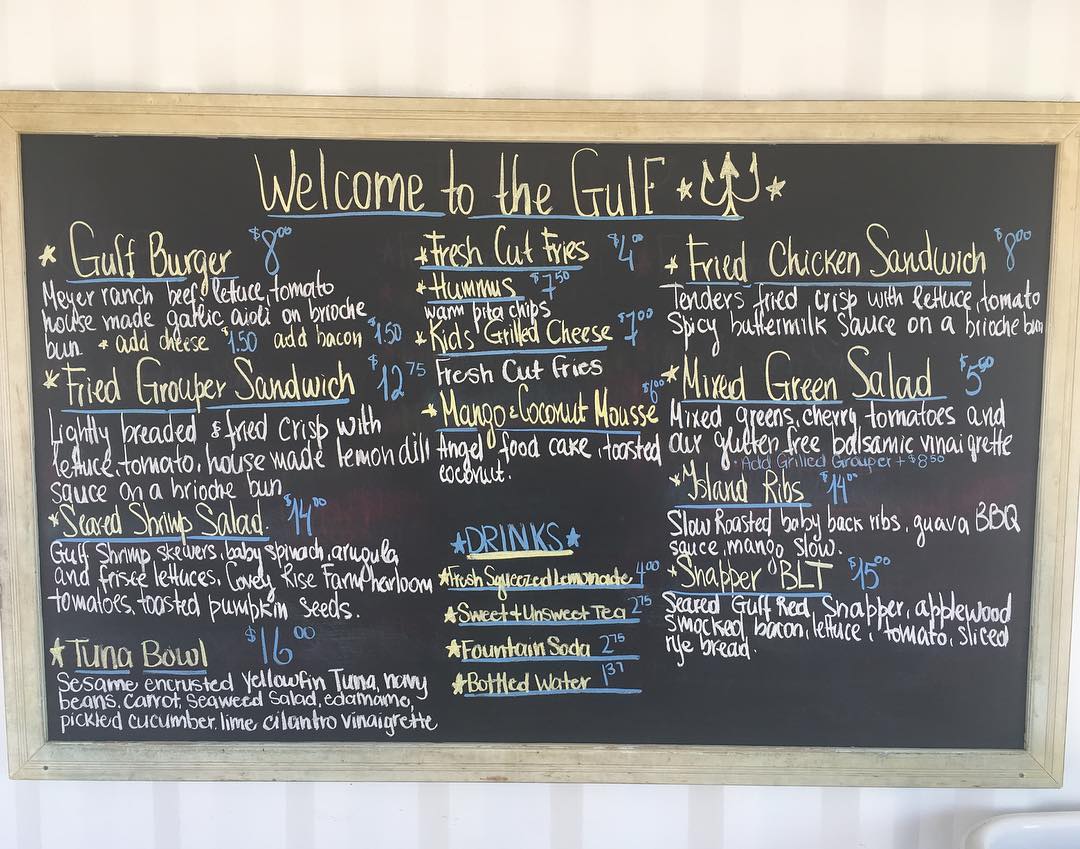 Welcome to the Gulf
Gulf Burger $8.00
Meyer ranch beef, lettuce, tomato
house made garlic aioli on brioche
bun * add cheese 1.50 add bacon 1.50
Fried Grouper Sandwich $12.75
Lightly breaded & fried crisp with
lettuce, tomato, house made lemon dill
sauce on a brioche bun
Seared Shrimp Salad. $14.00
Gulf Shrimp skewers, baby spinach, arugula,
and frisee lettuces, Covey Rise Farm heirloom
tomatoes, toasted pumpkin seeds.
Tuna Bowl $16.00
Sesame encrusted Yellowfin Tuna, navy
beans, carrot, seaweed salad, edamame,
pickled cucumber, lime cilantro vinaigrette
Fresh Cut Fries $4.00
Hummus $7.50
warm pita chips
Kids' Grilled Cheese $7.00
Fresh Cut Fries
Mango & Coconut Mousse $6.00
Angel food cake, toasted
coconut.
DRINKS
Fresh Squeezed Lemonade 4.00
Sweet + Unsweet Tea 2.75
Fountain Soda 2.75
Bottled Water 1.37
Fried Chicken Sandwich $8.00
Tenders fried crisp with lettuce, tomato
Spicy buttermilk sauce on a brioche bun
Mixed Green Salad $5.50
Mixed greens, cherry tomatoes and
our gluten free balsamic vinaigrette
• Add Grilled Grouper + $8.50
Island Ribs $14.00
Slow Roasted baby back ribs, guava BBQ
sauce, mango slow.
Snapper BLT $15.00
Seared Gulf Red, Snapper, applewood
smocked bacon, lettuce, tomato, sliced
rye bread.